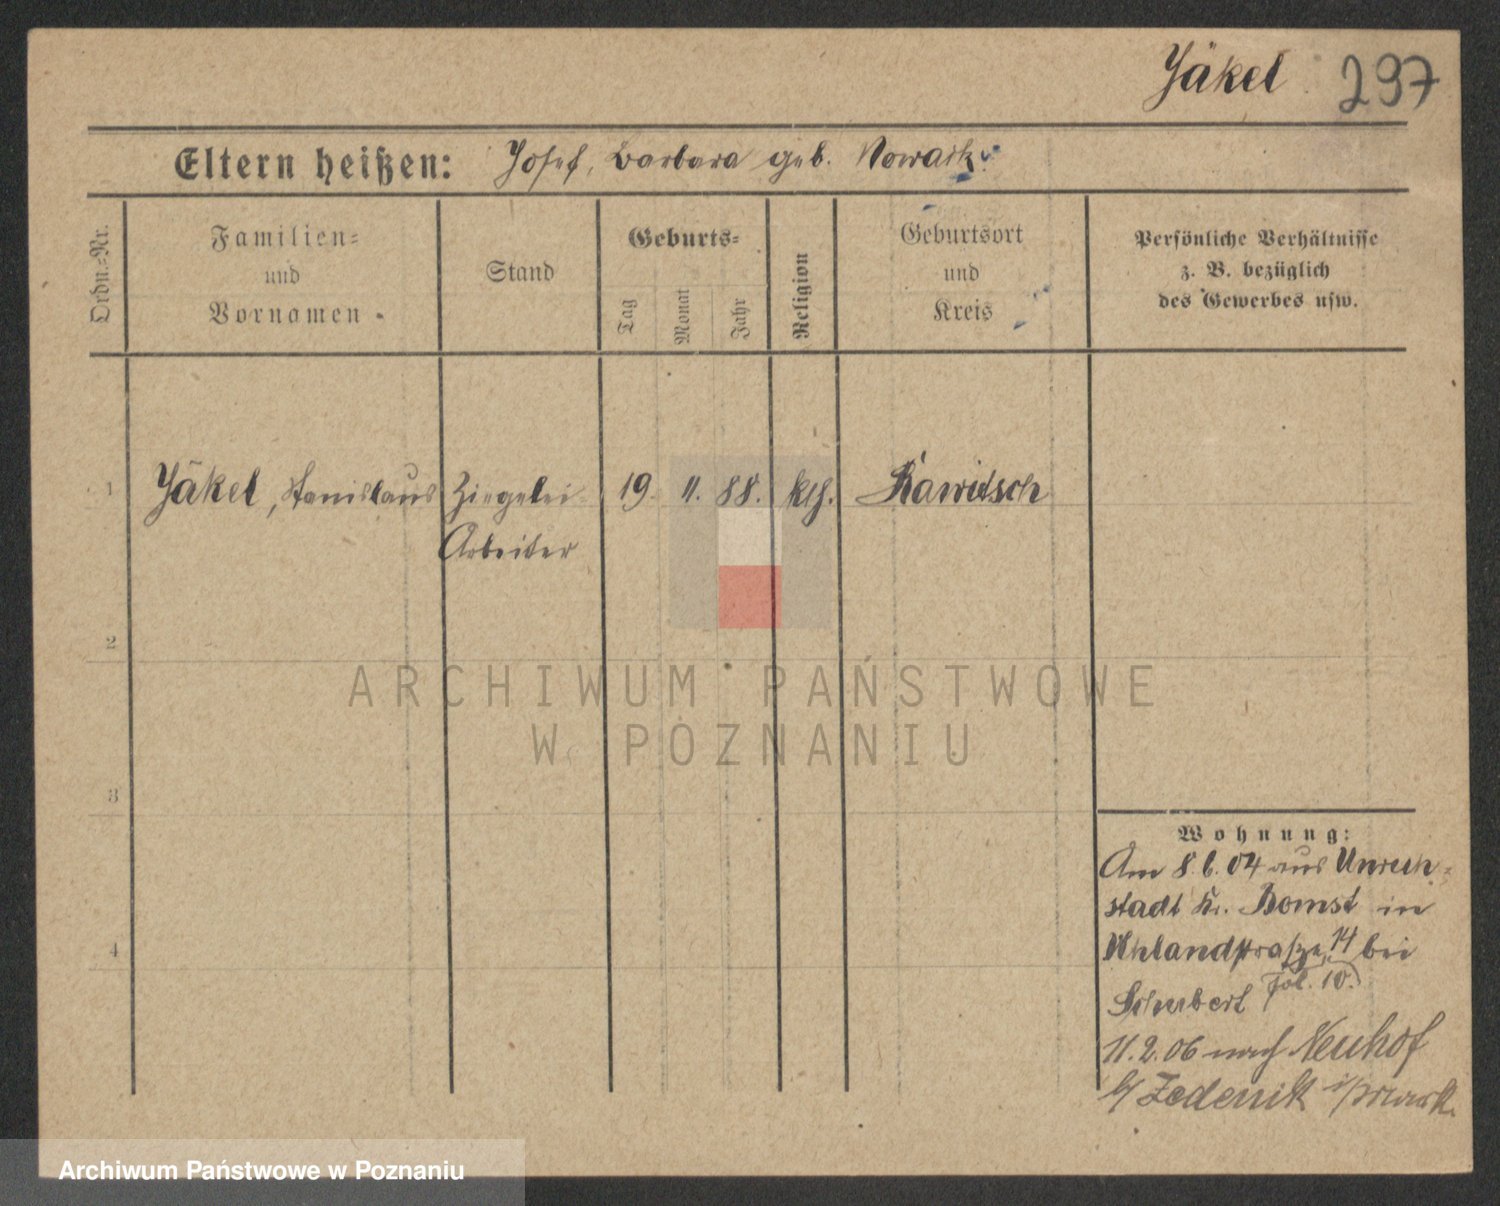 Jäkel 297
Eltern heißen: Josef, Barbara geb. Nowack
Ordn.-Nr.
Familien-
und
Vornamen
Stand
Geburts-
Tag
Monat
Jahr
Religion
Geburtsort
und
Kreis
Persönliche Verhältnisse
z. B. bezüglich
des Gewerbes usw.
1 Jäkel, Stanislaus Ziegelei 19. 11. 88. kth. Rawitsch
Arbeiter
2
ARCHIWUM PAŃSTWOWE
W POZNANIU
3
Wohnung:
Am 8.6.04 aus Unruh-
stadt Kr. Bomst in
Uhlandstraße 14 bei
Schubert Fol. 10.
11.2.06 nach Neuhof
b/ Zedenik
4
Archiwum Państwowe w Poznaniu